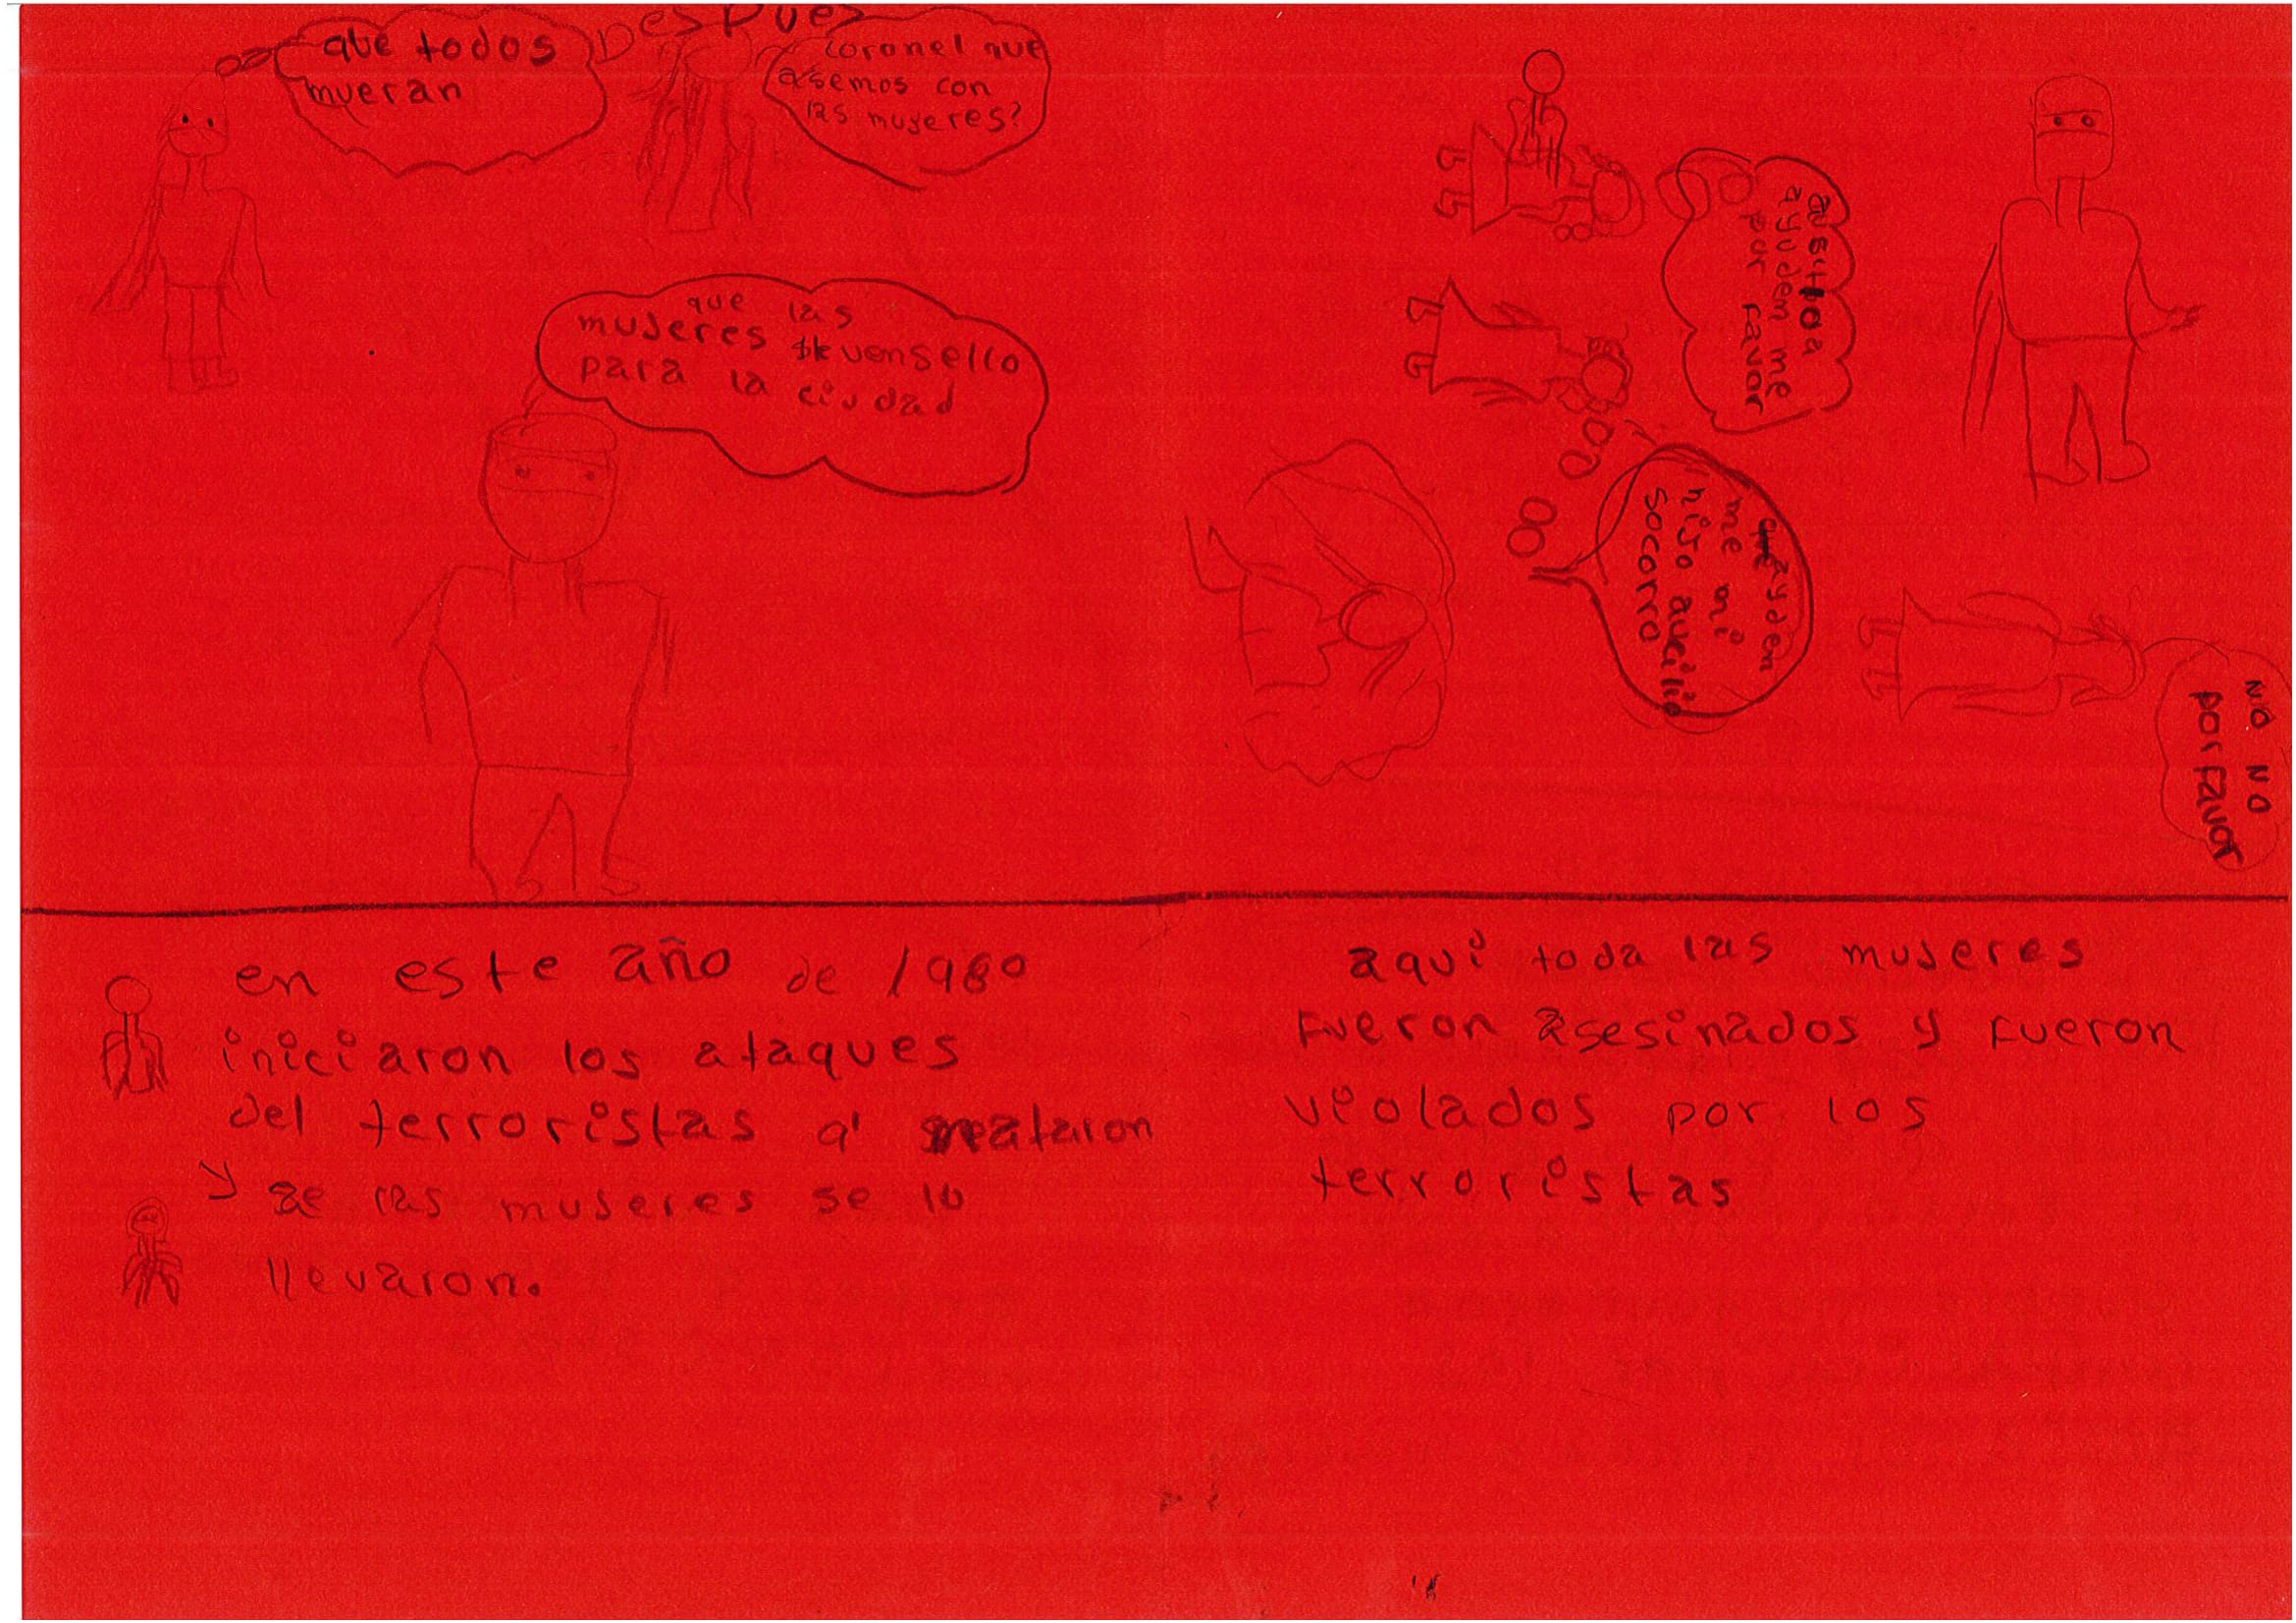 Despues
que todos
mueran
coronel que
asemos con
las mugeres?
que las
mujeres
para la ciudad
ayudem me
por favor
ayuden
me mi
hijo aucilio
socorro
NO NO
por favor
en este año de 1980
iniciaron los ataques
del terroristas q' mataron
y
las mujeres se lo
llevaron.
aqui toda las mujeres
fueron asesinados y fueron
violados por los
terroristas